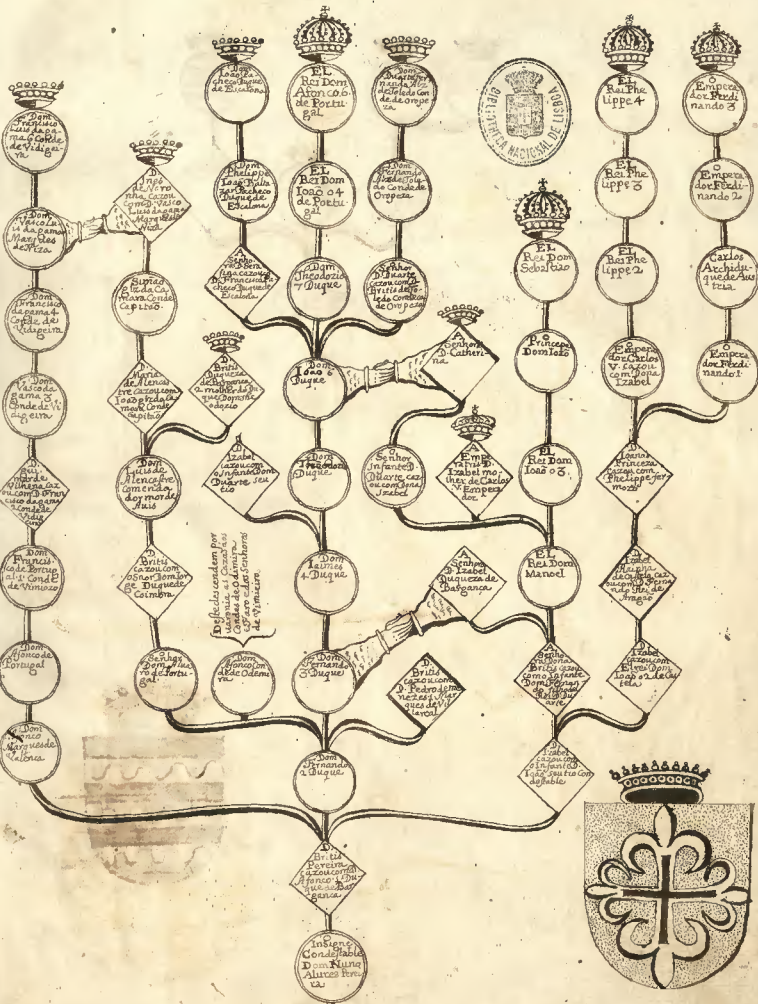 Dom
Francisco
Luis da gama
6 Conde
de Vidigei
ra
Dom
Vasco Lu
is da gama
Marques
de Niza
Dom
Francisco
da gama 4
Conde de
Vidigeira
Dom
Vasco da
gama 3
Conde de Vi
digeira
D.
Guio
mar de
Vilhena caz
ou com D. Fran
cisco da gama
2 Conde de
Vidi
Dom
Francis
co de Portug
al 1. Conde
de Vimiozo
Dom
Afonco de
Portugal
Dom
Afonco
Marques de
Valença
D.
Ines
de Noro
nha cazou
com D. Vasco
Luis da gama
Marques de
Niza
Simão
da Ca
mara Conde
Capitão
Maria
de Alencas
tre cazou com
Capitão
Dom
Luis de
Alencastre
comenda
dor mor de
Auis
D.
Britis
cazou com
o Snor Dom Jor
ge Duque de
Coimbra
Senhor
Dom Alua
ro de Portu
gal
D.
Britis
Duqueza
de Bargança
2. molher do Du
que Dom The
odozio
D.
Izabel
cazou com
o Infante Dom
Duarte seu
tio
Destes descendem por
Condes de Odimira
e Faro e dos Senhores
de Vimieiro
Dom
Afonco Con
de de Odemi
ra
Dom
Ioão Pa
checo Duque
de Escalona
Dom
Phelippe
Ioão Balta
zar Pacheco
Duque de
Escalona
A
Senho
ra D. Sera
fina cazou com
D. Francisco Pa
checo Duque de
Escalona
EL
Rei Dom
Afonco 6
de Portu
gal
EL
Rei Dom
Ioão o 4
de Portu
gal
Dom
Theodozio
7 Duque
Dom
Ioão 6
Duque
Dom
Theodozio
Duque
Dom
Iaimes
4 Duque
Dom
Fernando
3 Duque
Dom
Fernando
2 Duque
Dom
Duarte Fer
nando Alz
de Toledo Con
de de Orope
za
Dom
Fernando
Alz de Tole
do Conde de
Oropeza
Senhor
D. Duarte
cazou com D.
Britis de To
ledo Condeça
de Oropeza
A
Senhora
D. Catheri
na
Senhor
Infante D.
Duarte caz
ou com Dona
Izabel
Empe
ratris D.
Izabel mo
lher de Carlos
V. Empera
dor
A
Senhora
D. Izabel
Duqueza de
Bargança
D.
Britis
cazou com
D. Pedro de me
nezes 1 Mar
ques de Vi
lareal
BIBLIOTHECA NACIONAL DE LISBOA
EL
Rei Dom
Sebastião
O
Principe
Dom Ioão
EL
Rei Dom
Ioão o 3
EL
Rei Dom
Manoel
A
Senho
ra Dona
Britis cazou
com o Infante
Dom Fernan
do filho del
Rei D. Du
arte
D.
Izabel
cazou com
o Infante D.
Ioão seu tio Con
destable
EL
Rei Phe
lippe 4
EL
Rei Phe
lippe 3
EL
Rei Phe
lippe 2
O
Empera
dor Carlos
V. cazou
com Dona
Izabel
D.
Ioana
Princeza
cazou com
Phelippe fer
mozo
D.
Izabel
Rainha
de Castela caz
ou com D. Ferna
ndo Rei de
Aragão
D.
Izabel
cazou com
El rei Dom
Ioão o 2 de Cas
tela
O
Empera
dor Ferdi
nando 3
O
Empera
dor Ferdi
nando 2
Carlos
Archidu
que de Aus
tria
O
Empera
dor Ferdi
nando 1
D.
Britis
Pereira
cazou com D.
Afonco 1. Du
que de Bar
gança
O
Insigne
Condestable
Dom Nuno
Alures Perei
ra